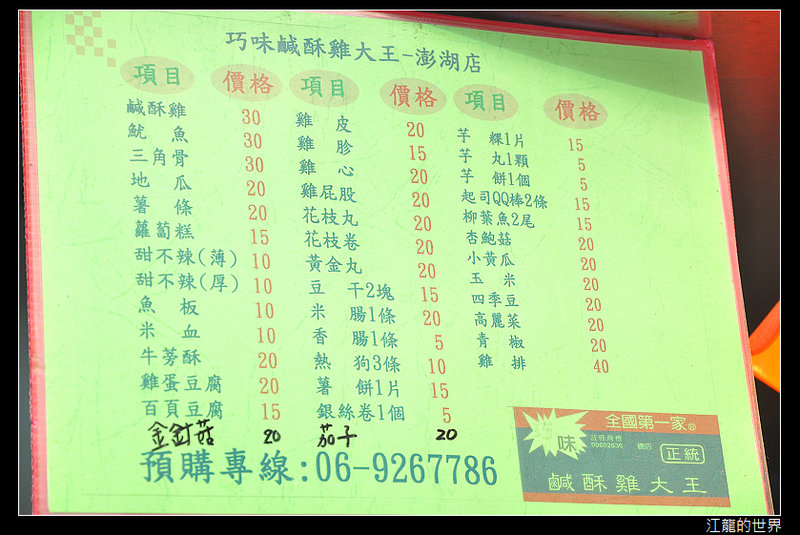 巧味鹹酥雞大王-澎湖店
項目 價格 項目 價格 項目 價格
鹹酥雞 30 雞 皮 20 芋 粿1片 15
魷 魚 30 雞 胗 15 芋 丸1顆 5
三角骨 30 雞 心 20 芋 餅1個 5
地 瓜 20 雞屁股 20 起司QQ棒2條 15
薯 條 20 花枝丸 20 柳葉魚2尾 15
蘿蔔糕 15 花枝卷 20 杏鮑菇 20
甜不辣(薄) 10 黃金丸 20 小黃瓜 20
甜不辣(厚) 10 豆 干2塊 15 玉 米 20
魚 板 10 米 腸1條 20 四季豆 20
米 血 10 香 腸1條 5 高麗菜 20
牛蒡酥 20 熱 狗3條 10 青 椒 20
雞蛋豆腐 20 薯 餅1片 15 雞 排 40
百頁豆腐 15 銀絲卷1個 5
金針菇 20 茄子 20
預購專線:06-9267786
全國第一家
味
註冊商標
正統
鹹酥雞大王
江龍的世界